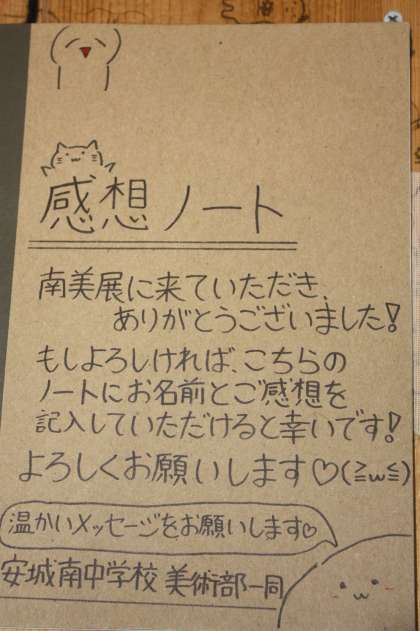 感想ノート
南美展に来ていただき、
ありがとうございました!
もしよろしければ、こちらの
ノートにお名前とご感想を
記入していただけると幸いです!
よろしくお願いします♡(≧ω≦)
温かいメッセージをお願いします♡
安城南中学校 美術部一同